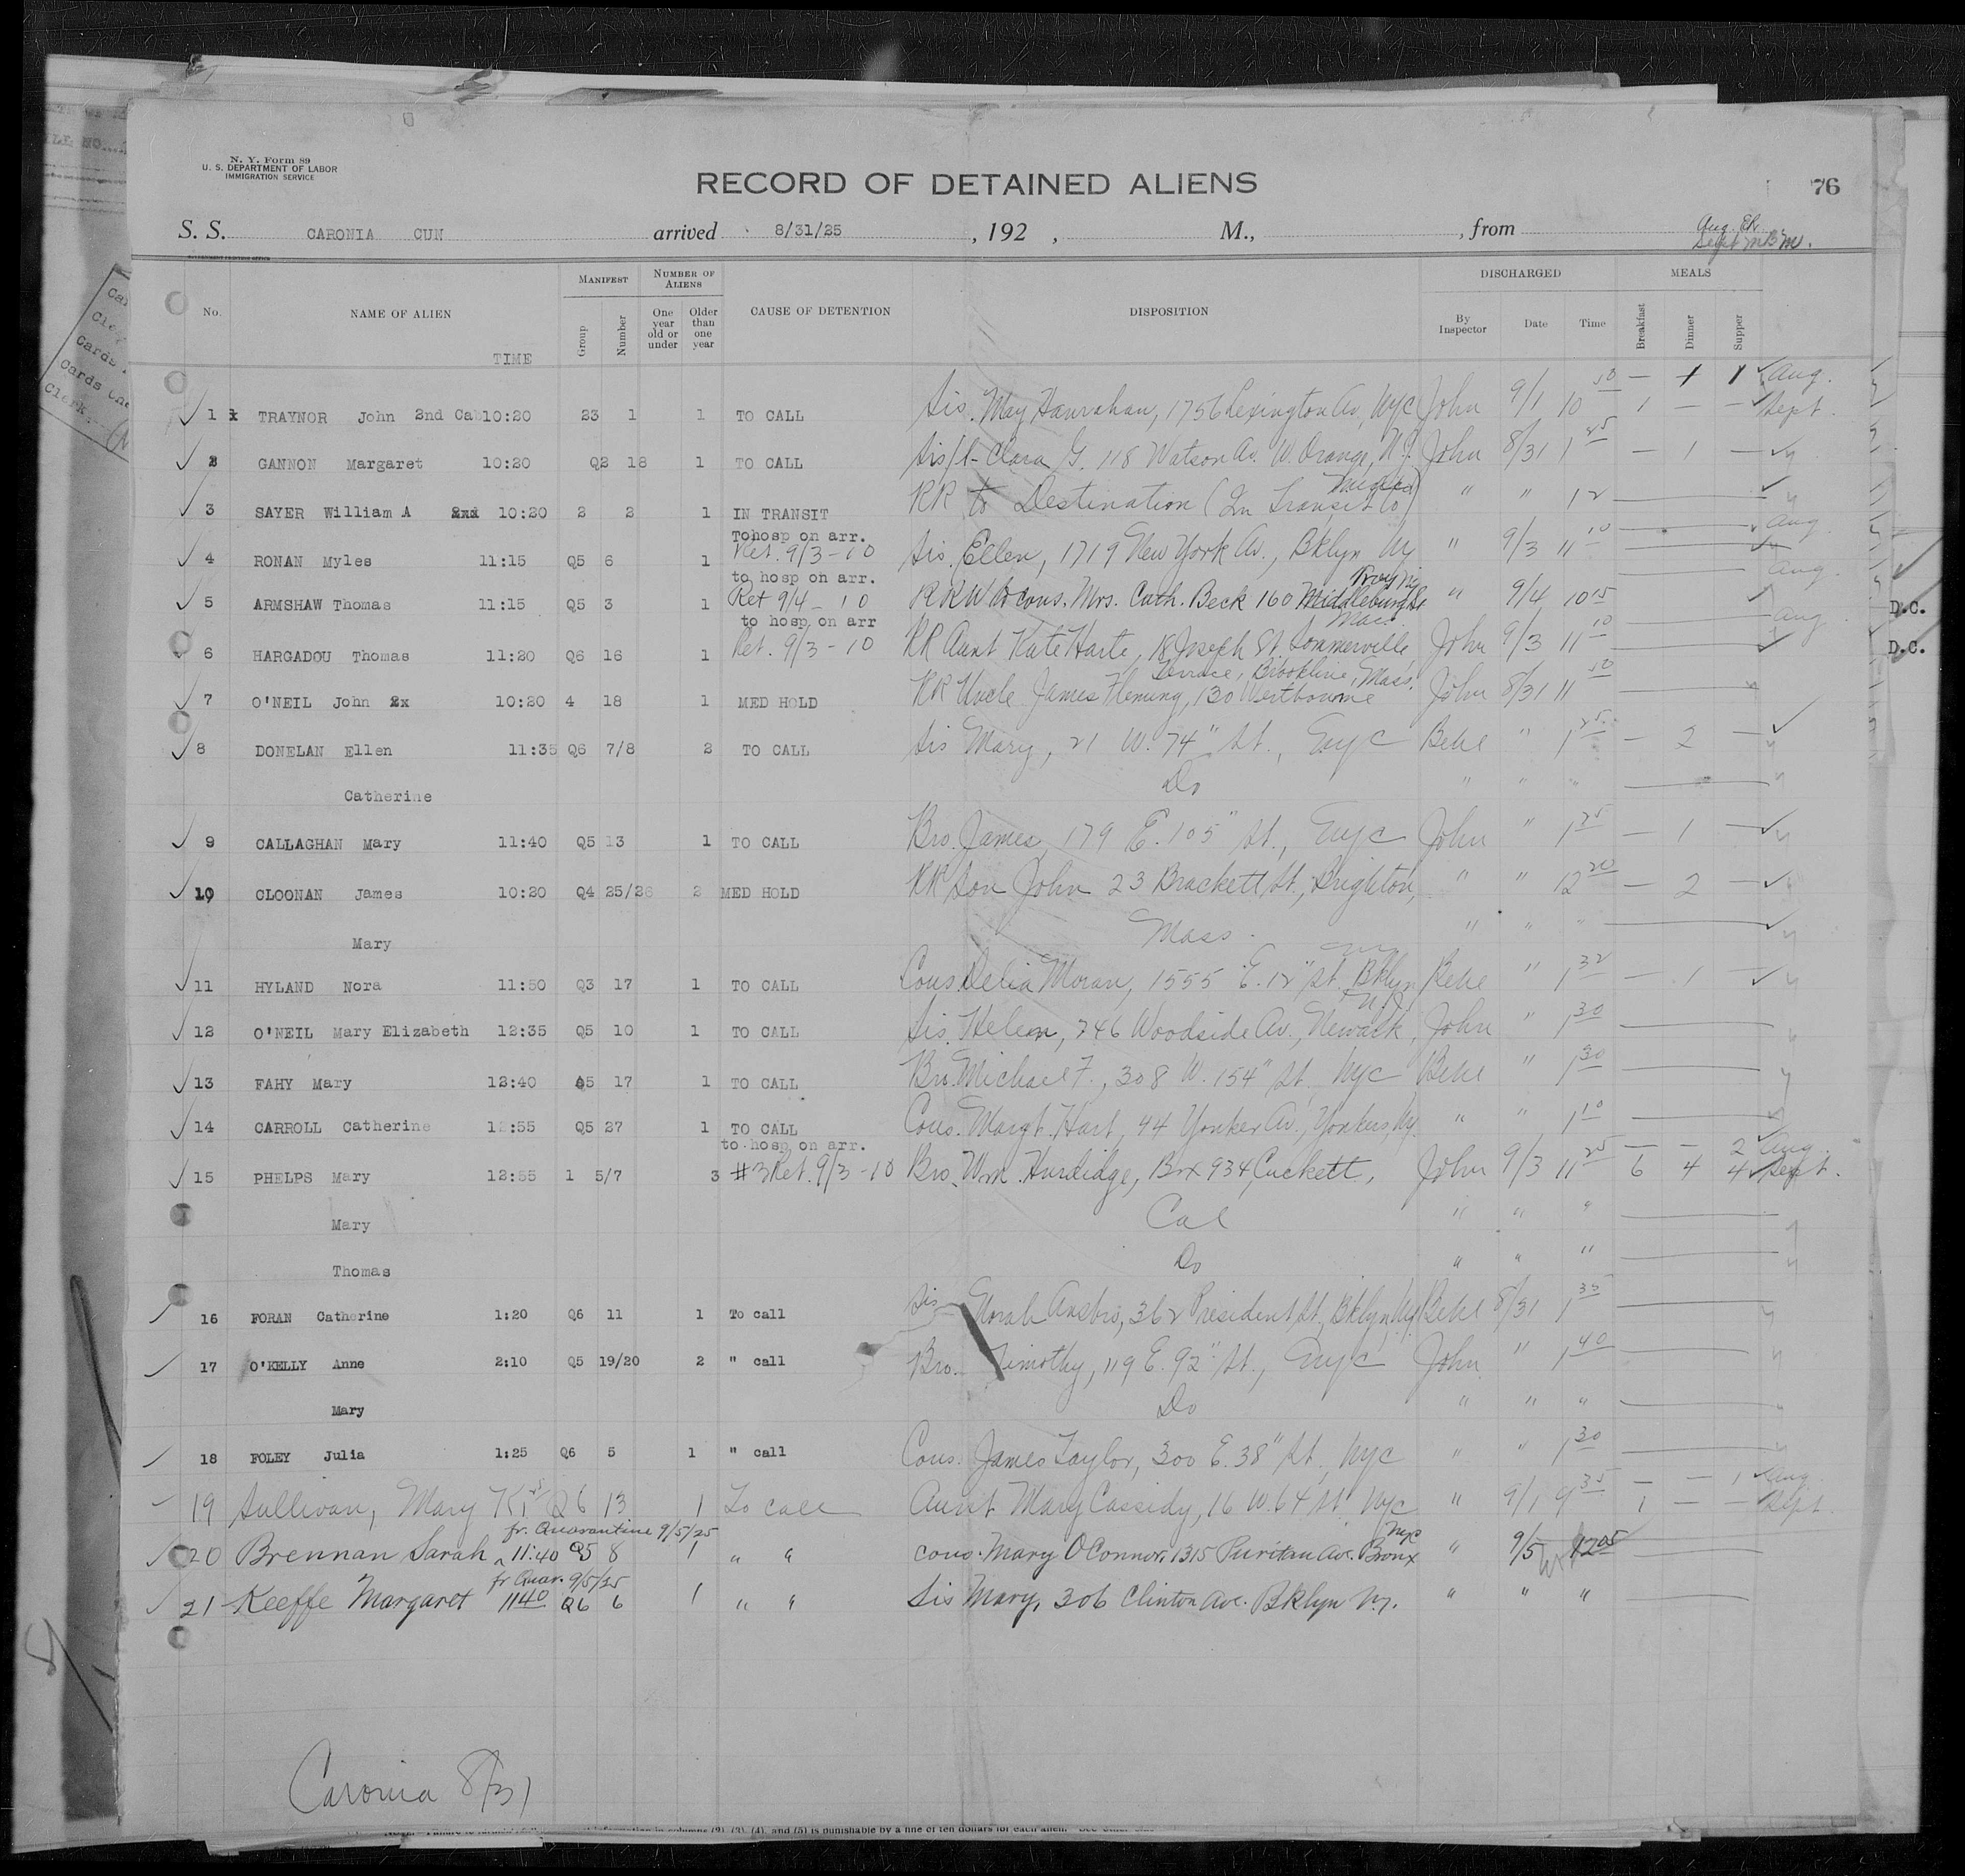 N. Y. Form 89
U. S. DEPARTMENT OF LABOR
IMMIGRATION SERVICE
RECORD OF DETAINED ALIENS
76
S. S. CARONIA CUN arrived 8/31/25 , 192 , M., , from
Aug. ER.
Sept
MANIFEST NUMBER OF ALIENS DISCHARGED MEALS
No. NAME OF ALIEN TIME Group Number One year old or under Older than one year CAUSE OF DETENTION DISPOSITION By Inspector Date Time Breakfast Dinner Supper
— 1 1 Aug.
1 TRAYNOR John 2nd Cab 10:20 23 1 1 TO CALL Sis. May Hanrahan, 1756 Lexington Av, NYC John 9/1 10 50 1 — — Sept.
2 GANNON Margaret 10:20 Q2 18 1 TO CALL Sis/l- Clara G. 118 Watson Av. W. Orange, N.J. John 8/31 1 45 — 1 —
3 SAYER William A 2nd 10:20 2 2 1 IN TRANSIT RR to Destination (In Transit to) " " 12
Tohosp on arr. Aug
4 RONAN Myles 11:15 Q5 6 1 Ret. 9/3-10 Sis. Ellen, 1719 New York Av., Bklyn Ny " 9/3 11 10
to hosp on arr. Troy Ny Aug.
5 ARMSHAW Thomas 11:15 Q5 3 1 Ret 9/4-10 RRW cous. Mrs. Cath. Beck 160 Middleburg St " 9/4 10 15 D.C.
to hosp on arr Mass. Aug
6 HARGADOU Thomas 11:20 Q6 16 1 Ret. 9/3-10 RR Aunt Kate Harte, 18 Joseph St. Sommerville John 9/3 11 10 D.C.
Terrace, Brookline, Mass.
7 O'NEIL John 2x 10:20 4 18 1 MED HOLD RR Uncle James Fleming, 130 Westbourne John 8/31 11 50
8 DONELAN Ellen 11:35 Q6 7/8 2 TO CALL Sis Mary, 21 W. 74" St., NYC Behe " 1 25 — 2 —
Catherine Do " " "
9 CALLAGHAN Mary 11:40 Q5 13 1 TO CALL Bro. James, 179 E. 105" St., NYC John " 1 25 — 1 —
10 CLOONAN James 10:20 Q4 25/26 2 MED HOLD RR Son John 23 Brackett St., Brighton, " " 12 20 — 2 —
Mary Mass. " " "
11 HYLAND Nora 11:50 Q3 17 1 TO CALL Cous. Delia Moran, 1555 E. 12" St. Bklyn Behe " 1 32 — 1 —
N.J.
12 O'NEIL Mary Elizabeth 12:35 Q5 10 1 TO CALL Sis. Helen, 746 Woodside Av., Newark, John " 1 30
13 FAHY Mary 12:40 Q5 17 1 TO CALL Bro. Michael F., 308 W. 154" St. Nyc Behe " 1 30
14 CARROLL Catherine 12:55 Q5 27 1 TO CALL Cous. Margt. Hart, 44 Yonker Av., Yonkers, Ny. " " 1 10
to hosp on arr. — — 2 Aug
15 PHELPS Mary 12:55 1 5/7 3 #3 Ret. 9/3-10 Bro. Wm. Hurdidge, Box 934, Cuckett, John 9/3 11 25 6 4 4 Sept.
Mary Cal " " "
Thomas Do " " "
16 FORAN Catherine 1:20 Q6 11 1 To call Sis Norah Ansbro, 362 President St., Bklyn, Ny Behe 8/31 1 35
17 O'KELLY Anne 2:10 Q5 19/20 2 " call Bro. Timothy, 119 E. 92" St., NYC John " 1 40
Mary Do " " "
18 FOLEY Julia 1:25 Q6 5 1 " call Cous. James Taylor, 300 E. 38" St., Nyc " " 1 30
— — 1 Aug
19 Sullivan, Mary K 1 Q6 13 1 To call Aunt Mary Cassidy, 16 W. 64 St. Nyc " 9/1 9 35 1 — — Sept
fr. Quarantine 9/5/25 Nyc
20 Brennan Sarah 11:40 Q5 8 1 " " cous. Mary O'Connor, 1315 Puritan Av. Bronx " 9/5 12 05
fr Quar. 9/5/25
21 Keeffe Margaret 11 40 Q6 6 1 " " Sis Mary, 306 Clinton Ave. Bklyn Ny. " " "
Caronia 8/31